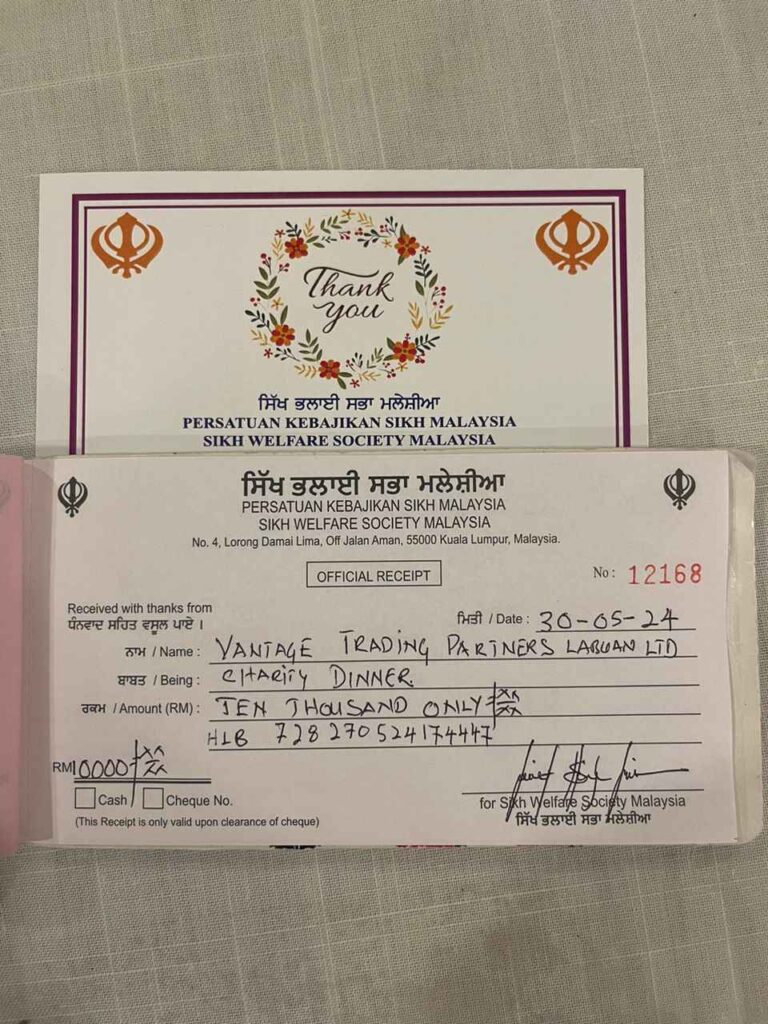 Thank
you
ਸਿੱਖ ਭਲਾਈ ਸਭਾ ਮਲੇਸ਼ੀਆ
PERSATUAN KEBAJIKAN SIKH MALAYSIA
SIKH WELFARE SOCIETY MALAYSIA
ਸਿੱਖ ਭਲਾਈ ਸਭਾ ਮਲੇਸ਼ੀਆ
PERSATUAN KEBAJIKAN SIKH MALAYSIA
SIKH WELFARE SOCIETY MALAYSIA
No. 4, Lorong Damai Lima, Off Jalan Aman, 55000 Kuala Lumpur, Malaysia.
OFFICIAL RECEIPT
No: 12168
Received with thanks from
ਧੰਨਵਾਦ ਸਹਿਤ ਵਸੂਲ ਪਾਏ ।
ਮਿਤੀ / Date: 30-05-24
ਨਾਮ / Name: VANTAGE TRADING PARTNERS LABUAN LTD
ਬਾਬਤ / Being: CHARITY DINNER
ਰਕਮ / Amount (RM): TEN THOUSAND ONLY
HLB 728270524174447
RM10000/ xx/xx
Cash / Cheque No.
for Sikh Welfare Society Malaysia
(This Receipt is only valid upon clearance of cheque)
ਸਿੱਖ ਭਲਾਈ ਸਭਾ ਮਲੇਸ਼ੀਆ